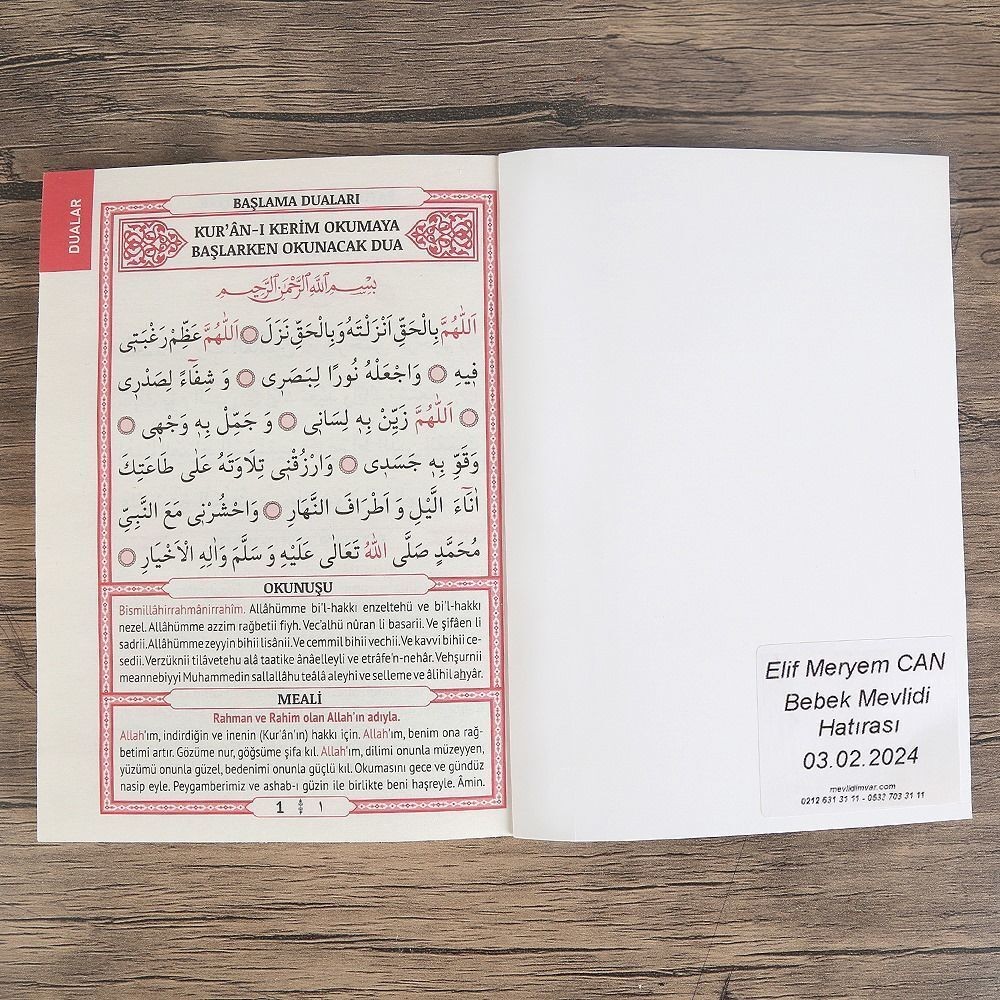 DUALAR
BAŞLAMA DUALARI
KUR'ÂN-I KERİM OKUMAYA
BAŞLARKEN OKUNACAK DUA
بِسْمِ اللّٰهِ الرَّحْمٰنِ الرَّحِيمِ
اَللّٰهُمَّ بِالْحَقِّ اَنْزَلْتَهُ وَبِالْحَقِّ نَزَلَ ۝ اَللّٰهُمَّ عَظِّمْ رَغْبَتٖى
فٖيهِ ۝ وَاجْعَلْهُ نُورًا لِبَصَرٖى ۝ وَ شِفَٓاءً لِصَدْرٖى
۝ اَللّٰهُمَّ زَيِّنْ بِهٖ لِسَانٖى ۝ وَ جَمِّلْ بِهٖ وَجْهٖى ۝
وَقَوِّ بِهٖ جَسَدٖى ۝ وَارْزُقْنٖى تِلَاوَتَهُ عَلٰى طَاعَتِكَ
اٰنَٓاءَ الَّيْلِ وَ اَطْرَافَ النَّهَارِ ۝ وَاحْشُرْنٖى مَعَ النَّبِىِّ
مُحَمَّدٍ صَلَّى اللّٰهُ تَعَالٰى عَلَيْهِ وَ سَلَّمَ وَاٰلِهِ الْاَخْيَارِ ۝
OKUNUŞU
Bismillâhirrahmânirrahîm. Allâhümme bi'l-hakkı enzeltehü ve bi'l-hakkı
nezel. Allâhümme azzim rağbetii fiyh. Vec'alhü nûran li basarii. Ve şifâen li
sadrii. Allâhümme zeyyin bihii lisânii. Ve cemmil bihii vechii. Ve kavvi bihii ce-
sedii. Verzüknii tilâvetehu alâ taatike ânâelleyli ve etrâfe'n-nehâr. Vehşurnii
meannebiyyi Muhammedin sallallâhu teâlâ aleyhi ve selleme ve âlihil ahyâr.
MEALİ
Rahman ve Rahim olan Allah'ın adıyla.
Allah'ım, indirdiğin ve inenin (Kur'ân'ın) hakkı için. Allah'ım, benim ona rağ-
betimi artır. Gözüme nur, göğsüme şifa kıl. Allah'ım, dilimi onunla müzeyyen,
yüzümü onunla güzel, bedenimi onunla güçlü kıl. Okumasını gece ve gündüz
nasip eyle. Peygamberimiz ve ashab-ı güzin ile birlikte beni haşreyle. Âmin.
1 ١
Elif Meryem CAN
Bebek Mevlidi
Hatırası
03.02.2024
mevlidimvar.com
0212 631 31 11 - 0532 703 31 11